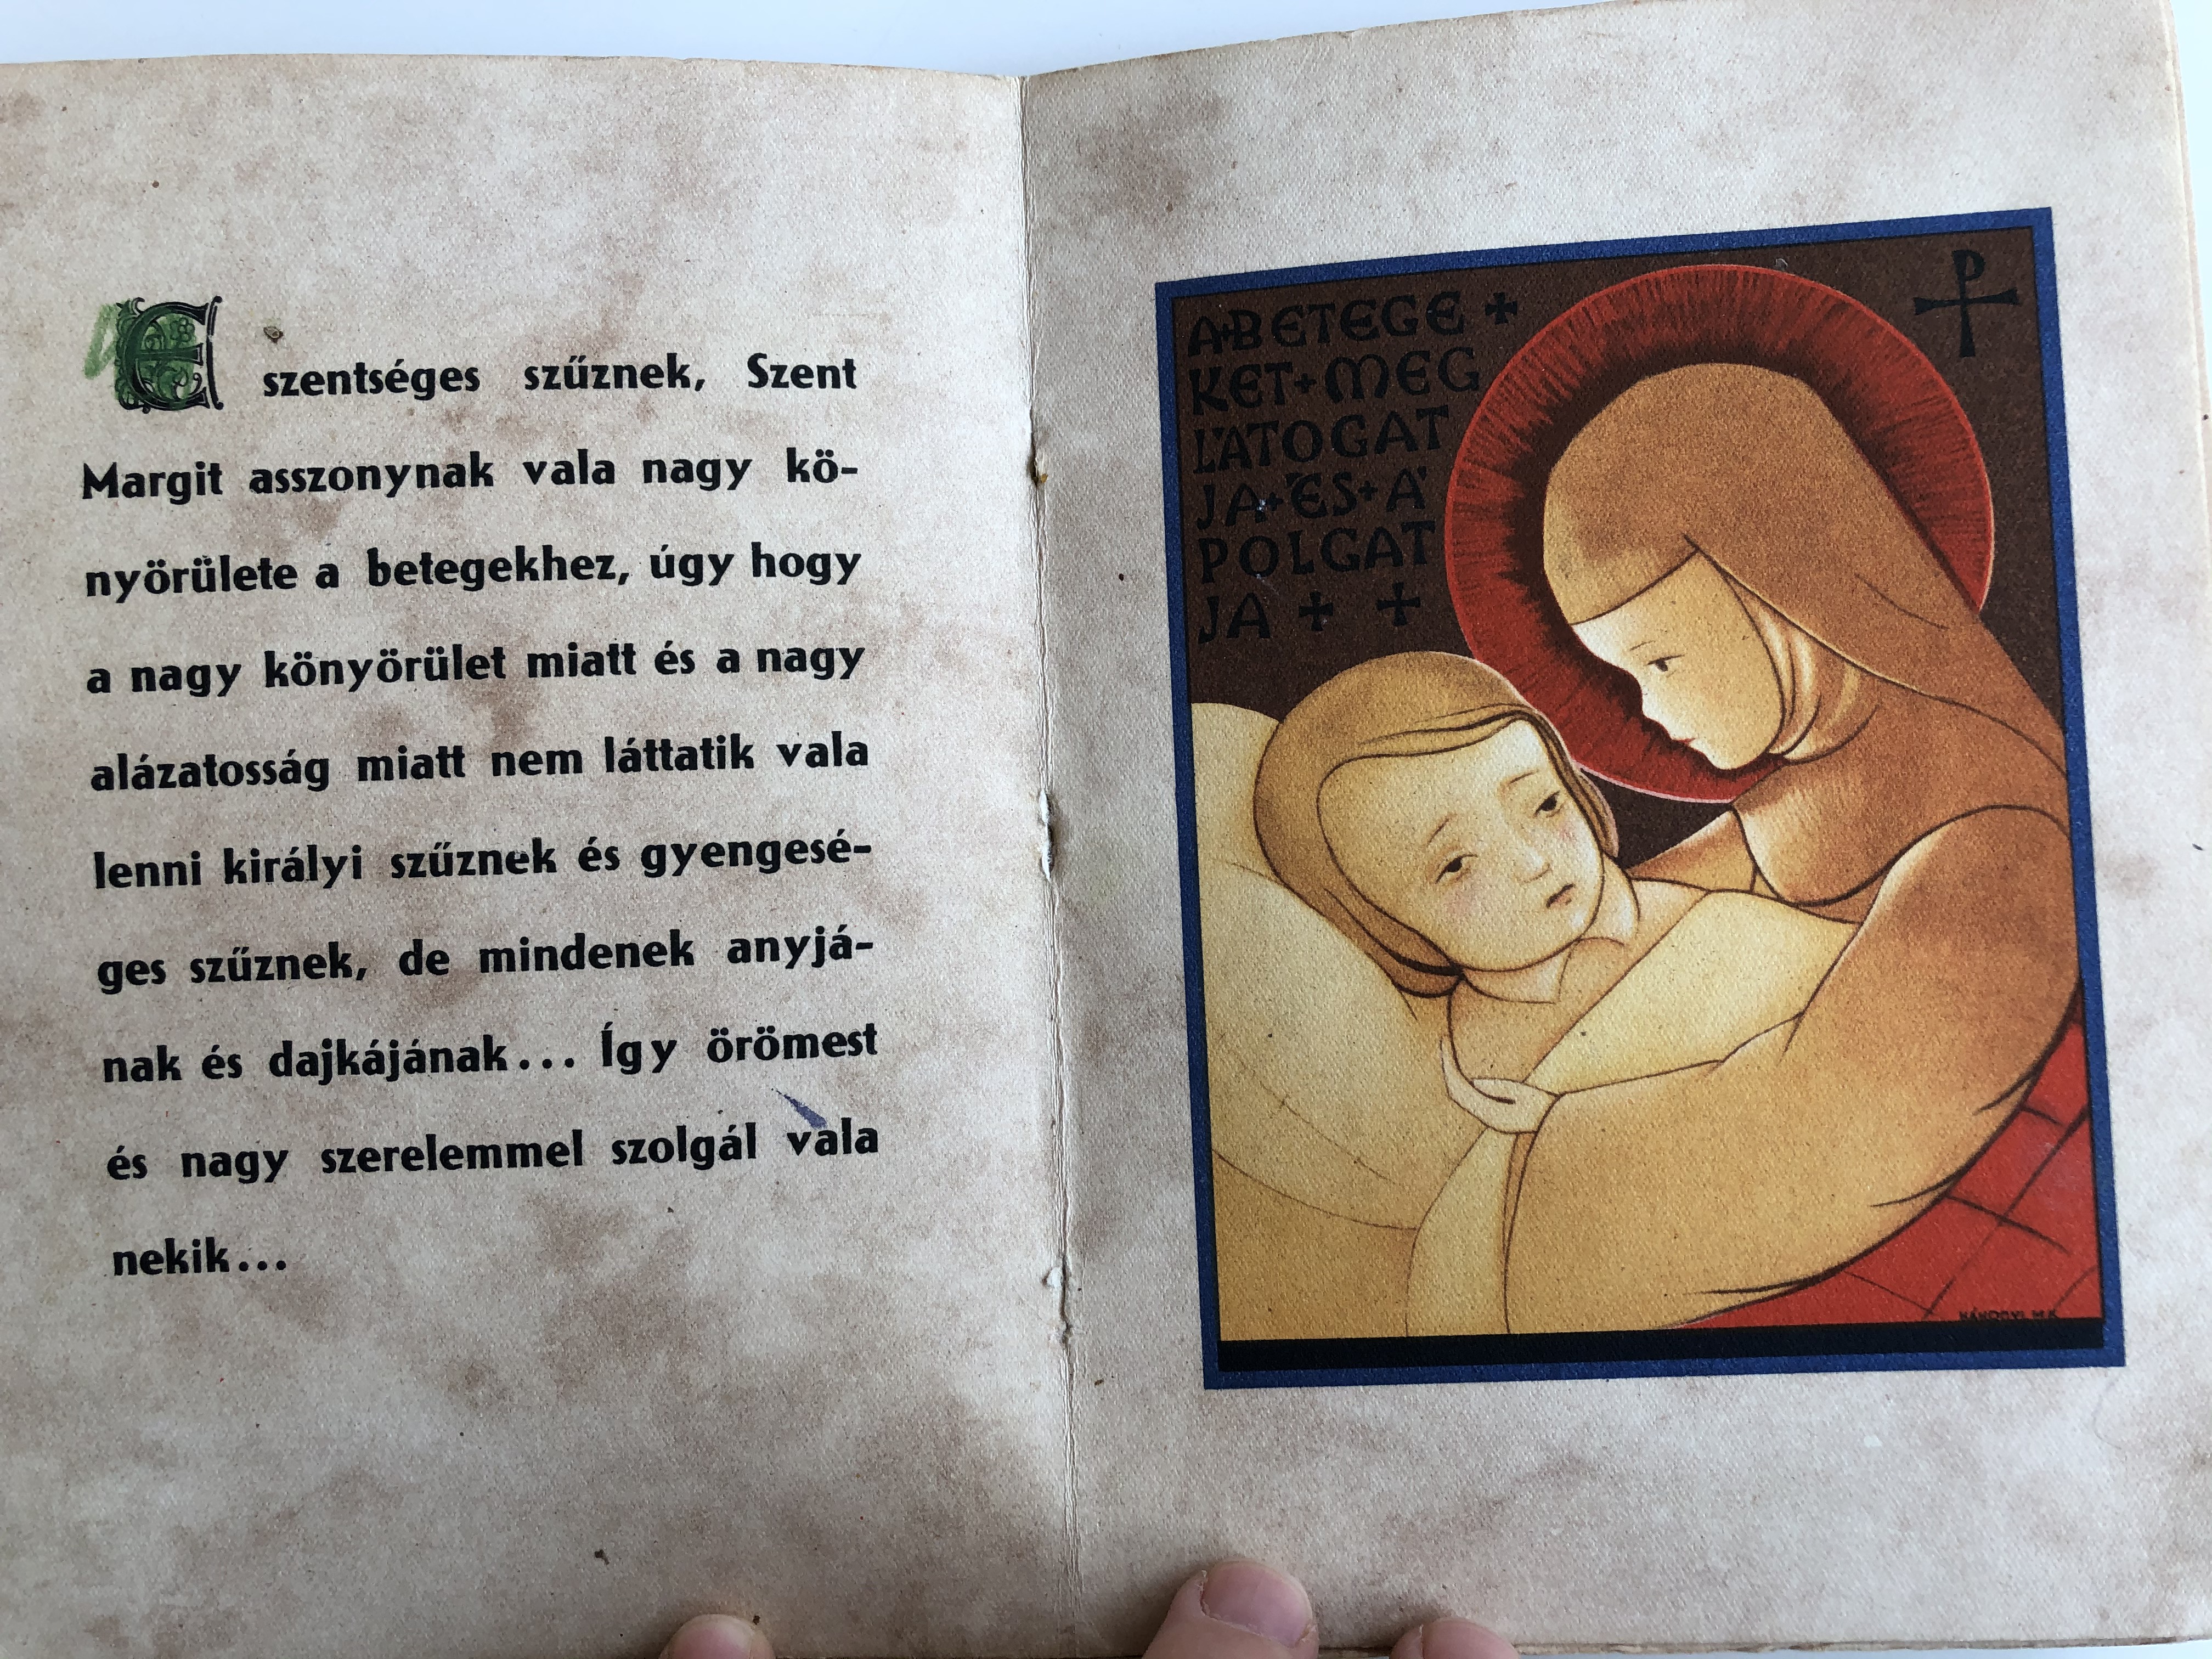 E szentséges szűznek, Szent
Margit asszonynak vala nagy kö-
nyörülete a betegekhez, úgy hogy
a nagy könyörület miatt és a nagy
alázatosság miatt nem láttatik vala
lenni királyi szűznek és gyengesé-
ges szűznek, de mindenek anyjá-
nak és dajkájának... Így örömest
és nagy szerelemmel szolgál vala
nekik...
A+BETEGE +
KET+MEG
LÁTOGAT
JA+ÉS+Á
POLGAT
JA + +